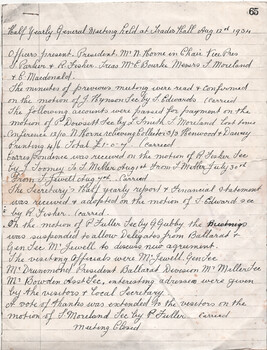 65
Half Yearly General Meeting held at Trades Hall Aug 12th 1934
Officers present. President. Mr N. Horne in Chair Vice Pres
J. Parker & R. Fisher. Treas Mr C Bourke Messrs T. Moreland
& C Macdonald.
The minutes of previous meeting were read & confirmed
on the motion of J. Hynson Sec by T. Edwards Carried
The following accounts were passed for payment on the
motion of P. Dowsett Sec by L. Smith T. Moreland Lost time
Conference 13/0 N. Horne relieving Collector 5/0 Henwood & Dancey
Printing 4/6 Total £1-0-7 Carried
Correspondence was received on the motion of R. Fisher Sec
by J. Toomey. From T. Miller, August From T. Miller, July 30th
From T. Jewell Aug 7th. Carried.
The Secretary's Half yearly report & Financial statement
was received & adopted on the motion of T. Edwards Sec
by R. Fisher. Carried.
On the motion of P. Fuller Sec by G. Gubby the
was suspended to allow Delegates from Ballarat &
Gen Sec Mr Jewell to discuss new agreement.
The visiting Officials were Mr Jewell Gen Sec
Mr Drummond President Ballarat Division Mr Muller Sec
Mr Bowden Asst Sec, interesting adresses were given
by the visitors & Local Secretary.
A vote of thanks was extended to the visitors on the
motion of T. Moreland Sec by P. Fuller. Carried
Meeting Closed.